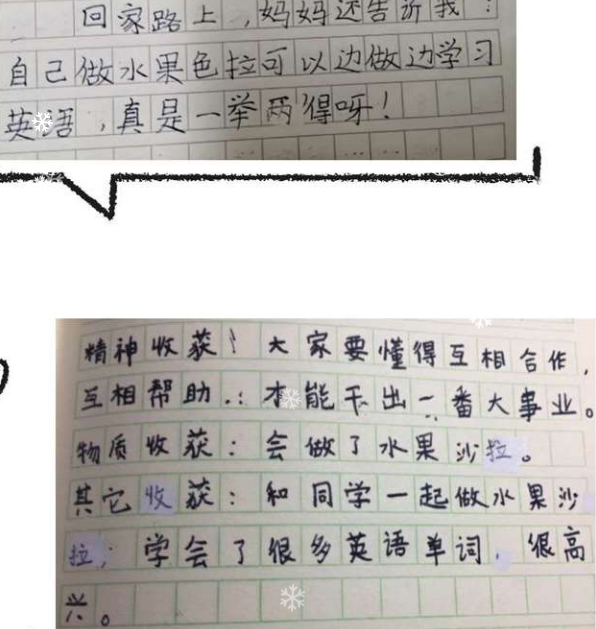 回家路上，妈妈还告诉我：
自己做水果色拉可以边做边学习
英语，真是一举两得呀！
精神收获：大家要懂得互相合作，
互相帮助．：才能干出一番大事业。
物质收获：会做了水果沙拉。
其它收获：和同学一起做水果沙
拉；学会了很多英语单词，很高
兴。